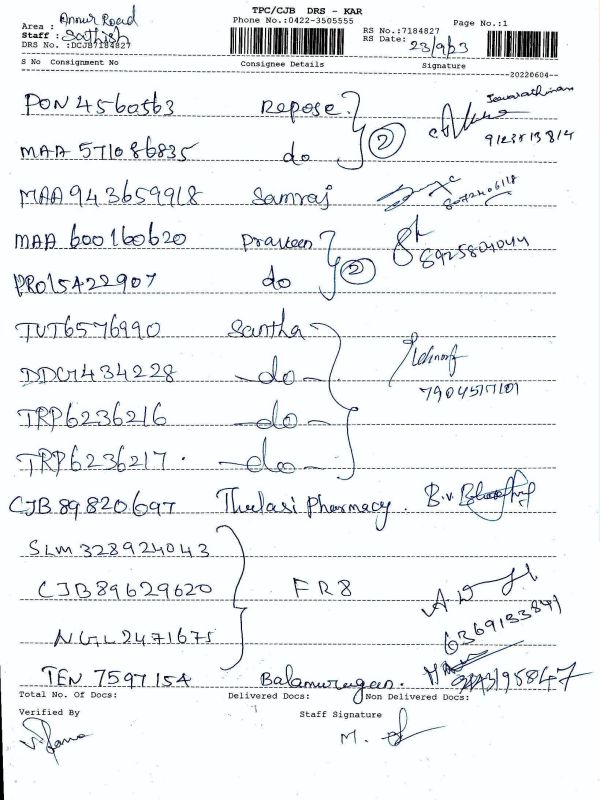 TPC/CJB DRS - KAR
Area : Annur Road Phone No.:0422-3505555 Page No.:1
Staff : Sathish RS No.:7184827
DRS No. :DCJB7184827 RS Date: 23/9/23
S No Consignment No Consignee Details Signature
20220604
PON 4560563 Repose
9123513814
MAA 571086835 do 2
MAA 943659918 Samraj
MAA 600160620 Praveen
8925804044
PRO15422907 do 2
TUT6576990 Santha
DDG1434228 -do-
7904517101
TRP6236216 -do-
TRP6236217 . -do-
CJB 89820697 Thulasi Pharmacy .
SLM 328924043
CJB89629620 FR8
6369133841
NGL2471675
TEN 7597154 Balamurugan.
Total No. Of Docs: Delivered Docs: Non Delivered Docs:
Verified By Staff Signature